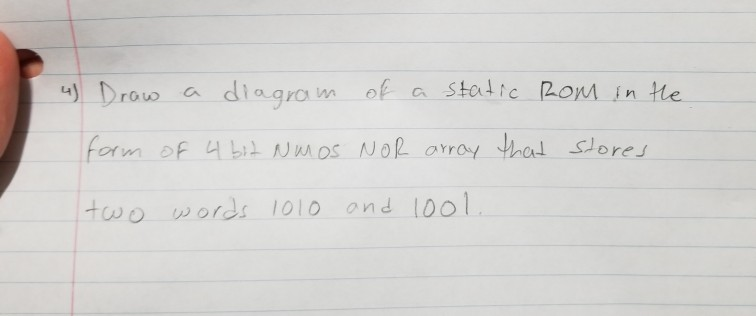 4) Draw a diagram of a static ROM in the
form of 4 bit NMOS NOR array that stores
two words 1010 and 1001.